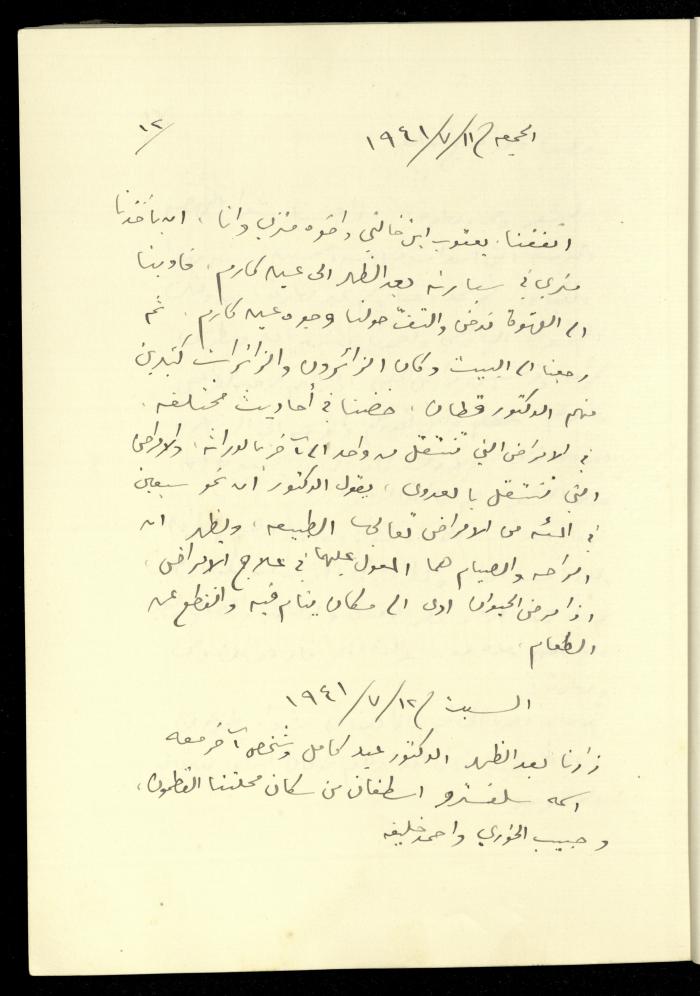 ١٢/
الجمعه ١١/٧/١٩٤١
اتفقنا، يعقوب ابن خالتي واخوه متري وانا، ان يأخذنا
متري في سيارته بعد الظهر الى عين كارم، فاوينا
الى القهوة ندخن والتفت حولنا وجوه عين كارم. ثم
رجعنا الى البيت وكان الزائرون والزائرات كثيرين
منهم الدكتور قطان، خضنا في أحاديث مختلفه،
في الامراض التي تنتقل من واحد الى آخر بالوراثه، والامراض
التي تنتقل بالعدوى، يقول الدكتور ان نحو سبعين
في المئه من الامراض تعالجها الطبيعه، ويظهر ان
الراحه والصيام هما المعول عليهما في علاج الامراض،
اذا مرض الحيوان اوى الى مكان ينام فيه وانقطع عن
الطعام.
السبت ١٢/٧/١٩٤١
زارنا بعد الظهر الدكتور عيد كامل وشخص آخر معه
اسمه سلفسترو اسطفان من سكان محلتنا القطمون،
وحبيب الخوري واحمد خليفه